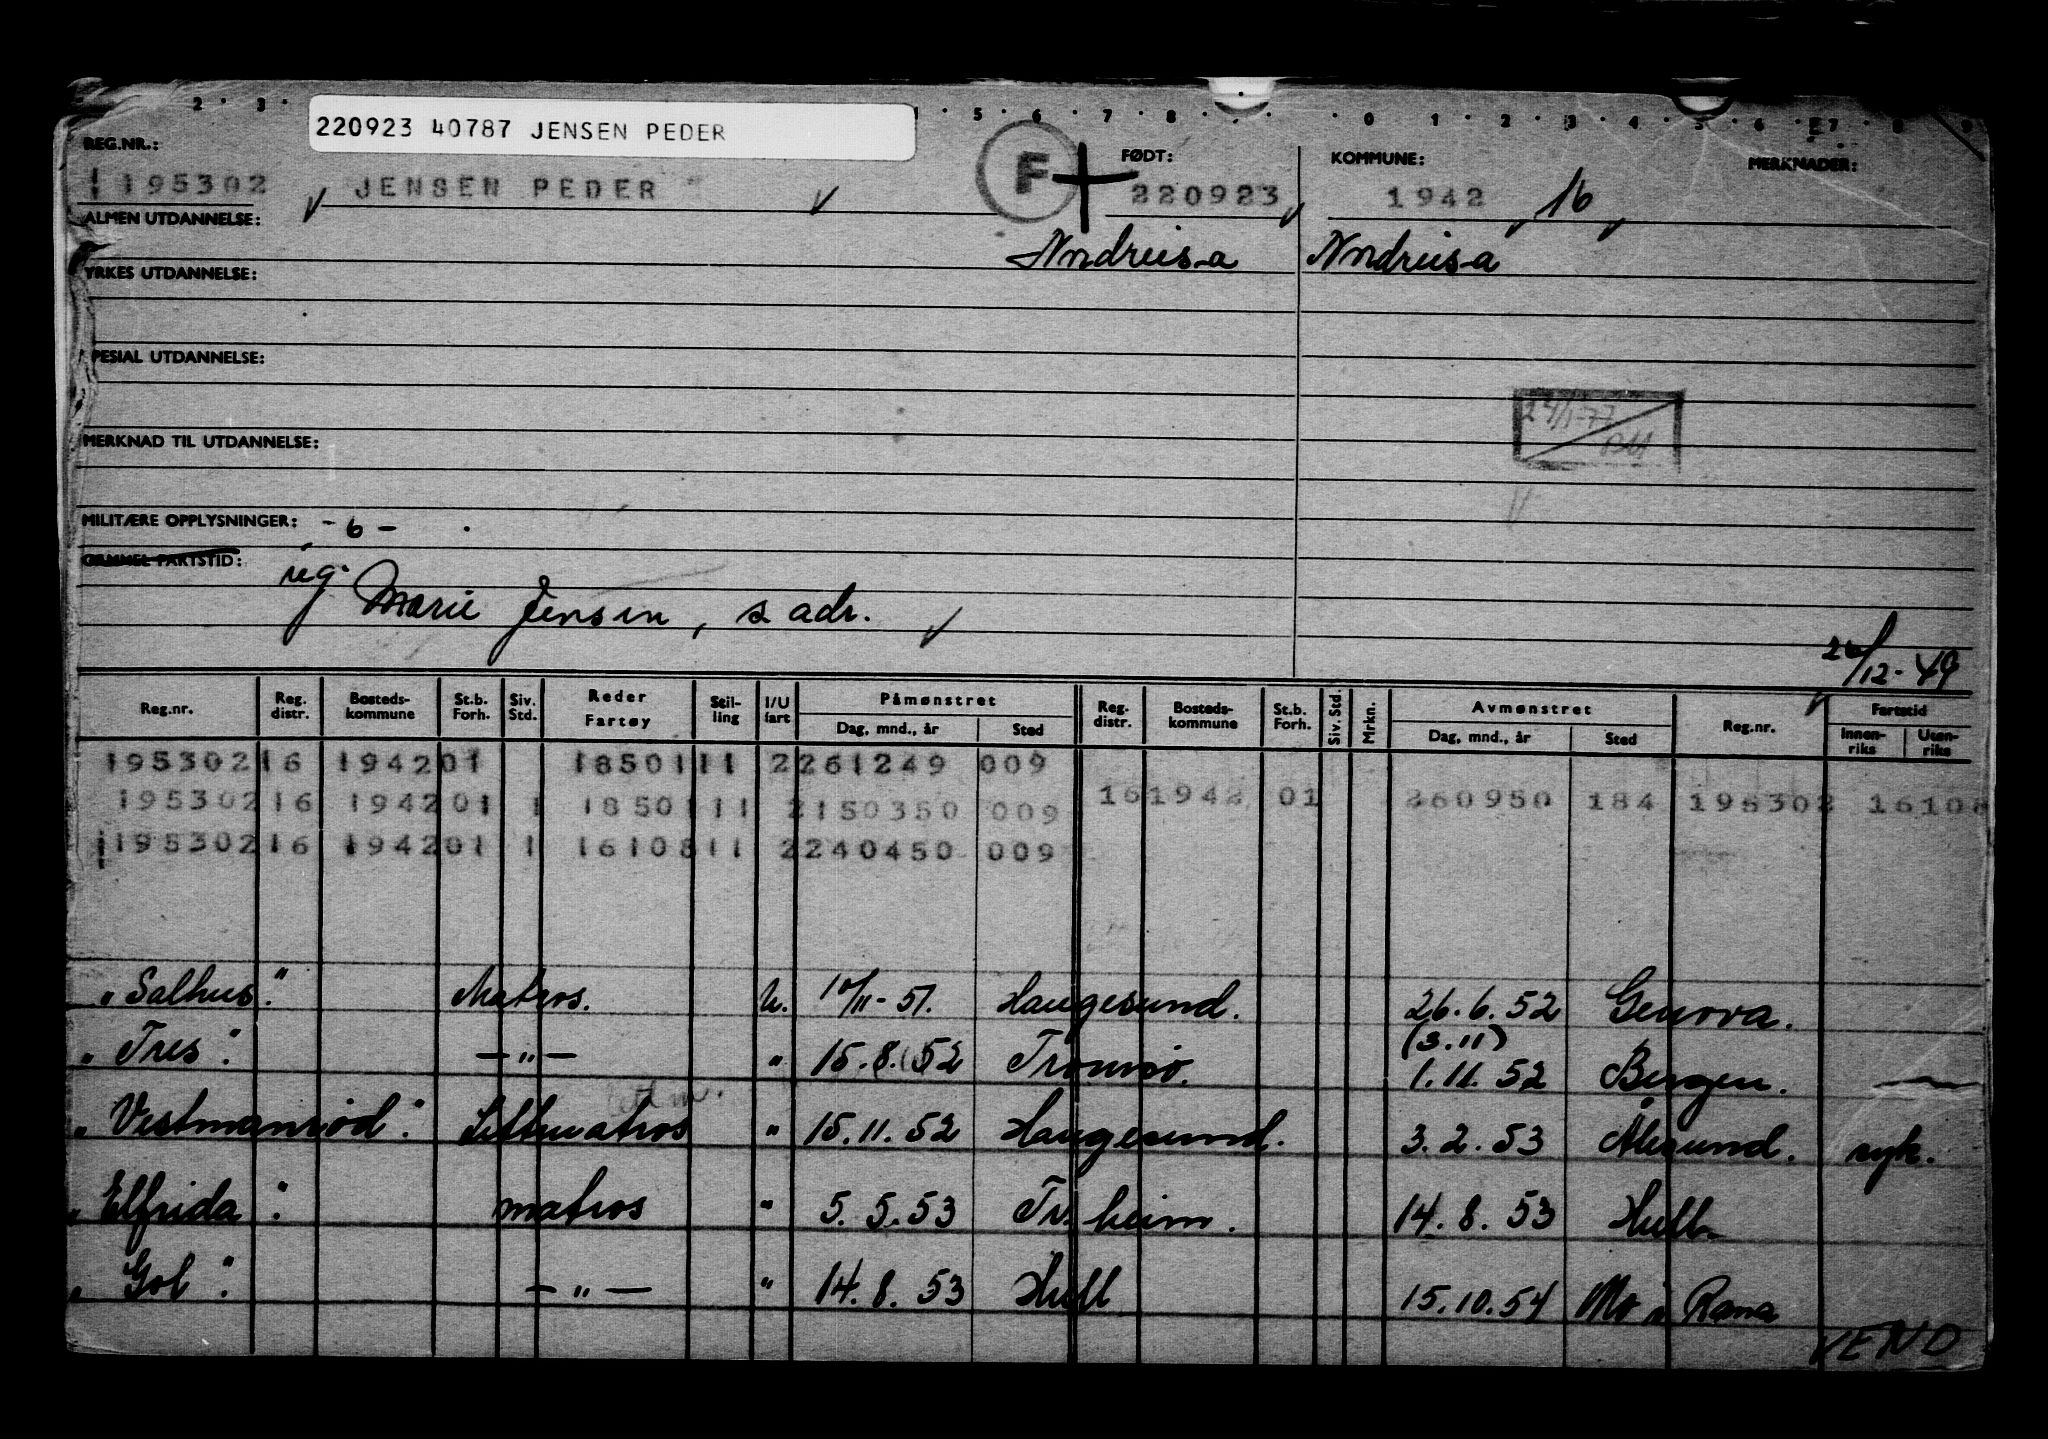 2 · 3 · 4 · 5 · 6 · 7 · 8 · · · 0 · 1 · 2 · 3 · 4 · 5 · 6 · 7 · 8 · 9
220923 40787 JENSEN PEDER
REG.NR.: F FØDT: KOMMUNE: MERKNADER:
195302 JENSEN PEDER 220923 1942 16
ALMEN UTDANNELSE:
Nordreisa Nordreisa
YRKES UTDANNELSE:
SPESIAL UTDANNELSE:
24/1-77
MERKNAD TIL UTDANNELSE:
MILITÆRE OPPLYSNINGER: - 6 -
GAMMEL FARTSTID:
reg. Marie Jensen, s adr.
/12-49
Reg.nr. Reg. distr. Bosteds-kommune St.b. Forh. Siv. Std. Reder Fartøy Stil-ling I/U fart Påmønstret Dag, mnd., år Sted Reg. distr. Bosteds-kommune St.b. Forh. Siv. Std. Mrkn. Avmønstret Dag, mnd., år Sted Reg.nr. Fartstid Innen-riks Uten-riks
195302 16 1942 01 18501 11 2 261249 009
195302 16 1942 01 1 18501 11 2 150350 009 16 1942 01 260950 184 195302 16108
195302 16 1942 01 1 16108 11 2 240450 009
"Salhus." Matros. U. 10/11-51. Haugesund. 26.6.52 Genova.
"Tres". — " — " 15.8.52 Tromsø. (3.11) 1.11.52 Bergen.
"Vestmanrød". Lettmatros " 15.11.52 Haugesund. 3.2.53 Ålesund. syk.
"Elfrida". matros " 5.5.53 Tr.heim. 14.8.53 Hull.
"Gol". — " — " 14.8.53 Hull 15.10.54 Mo i Rana
VEND